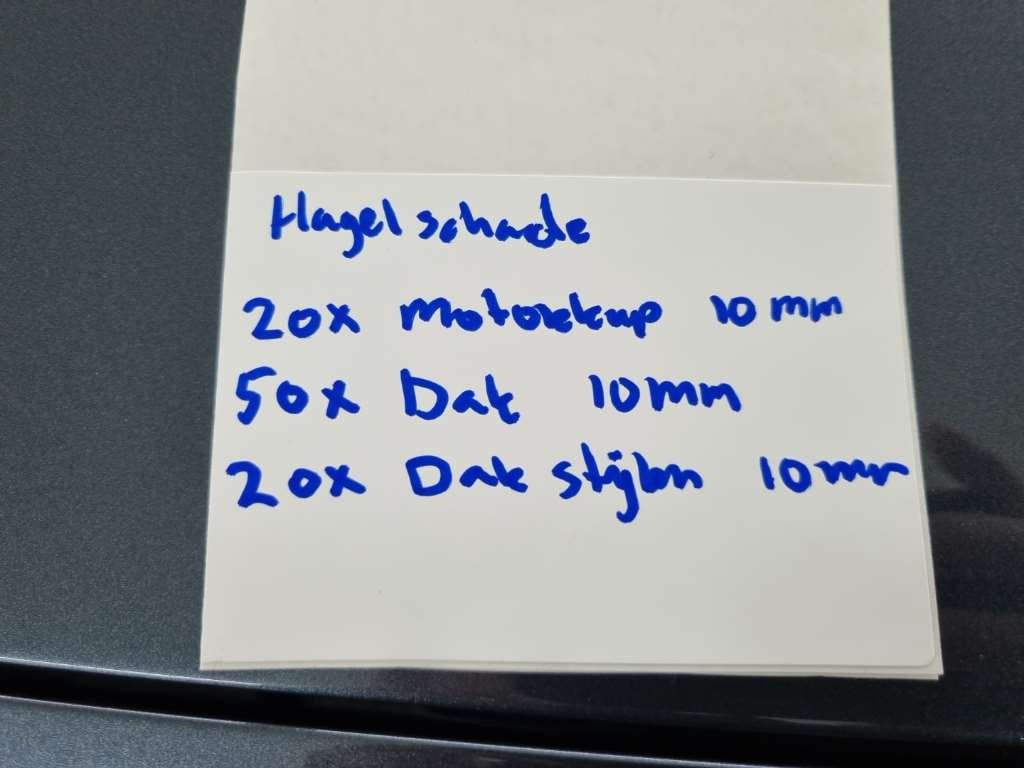 Hagel schade
20x Motorekap 10 mm
50x Dak 10mm
20x Dak stijlen 10mm